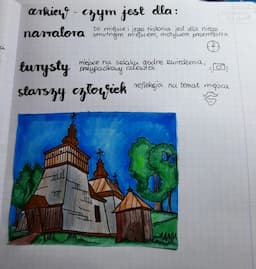 cerkiew - czym jest dla:
narratora to miejsce i jego historia jest dla niego
smutnym miejscem, motywem przemijania
turysty miejsce na szlaku godne zwiedzenia,
przypadkowy człowiek
starszy człowiek refleksja na temat miejsca